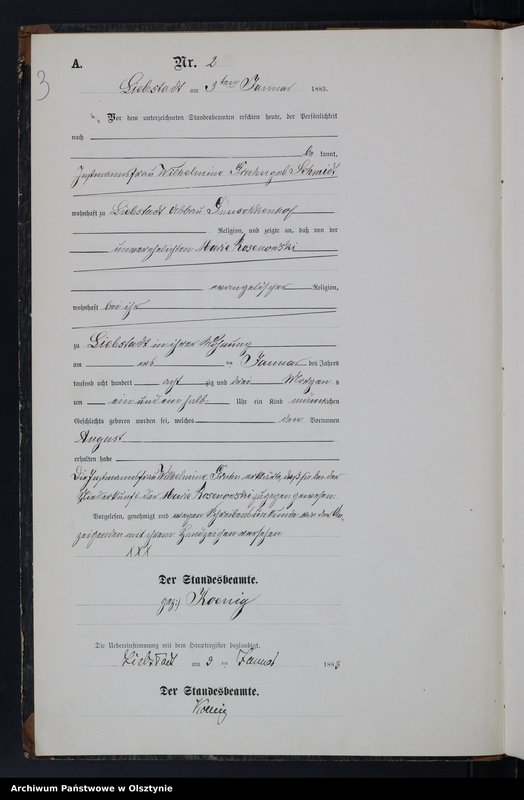 A.
Nr. 2
3
Liebstadt am 3ten Januar 1883.
Vor dem unterzeichneten Standesbeamten erschien heute, der Persönlichkeit
nach
be kannt,
Instmannsfrau Wilhelmine geb. Schmidt
wohnhaft zu Liebstadt Abbau
Religion, und zeigte an, daß von der
unverehelichten Marie Rosenowski
evangelischer Religion,
wohnhaft bei ihr
zu Liebstadt in ihrer Wohnung
am ersten Januar des Jahres
tausend acht hundert acht zig und drei Morgens
um ein und ein halb Uhr ein Kind männlichen
Geschlechts geboren worden sei, welches den Vornamen
August
erhalten habe
Die Instmannsfrau Wilhelmine erklärte, daß sie bei der
Niederkunft der Marie Rosenowski zugegen gewesen
Vorgelesen, genehmigt und wegen Schreibensunkunde von der An-
zeigenden mit ihrem Handzeichen versehen
XXX
Der Standesbeamte.
gez:) Koenig
Die Uebereinstimmung mit dem Hauptregister beglaubigt.
Liebstadt am 3 ten Januar 1883
Der Standesbeamte.
Koenig
Archiwum Państwowe w Olsztynie